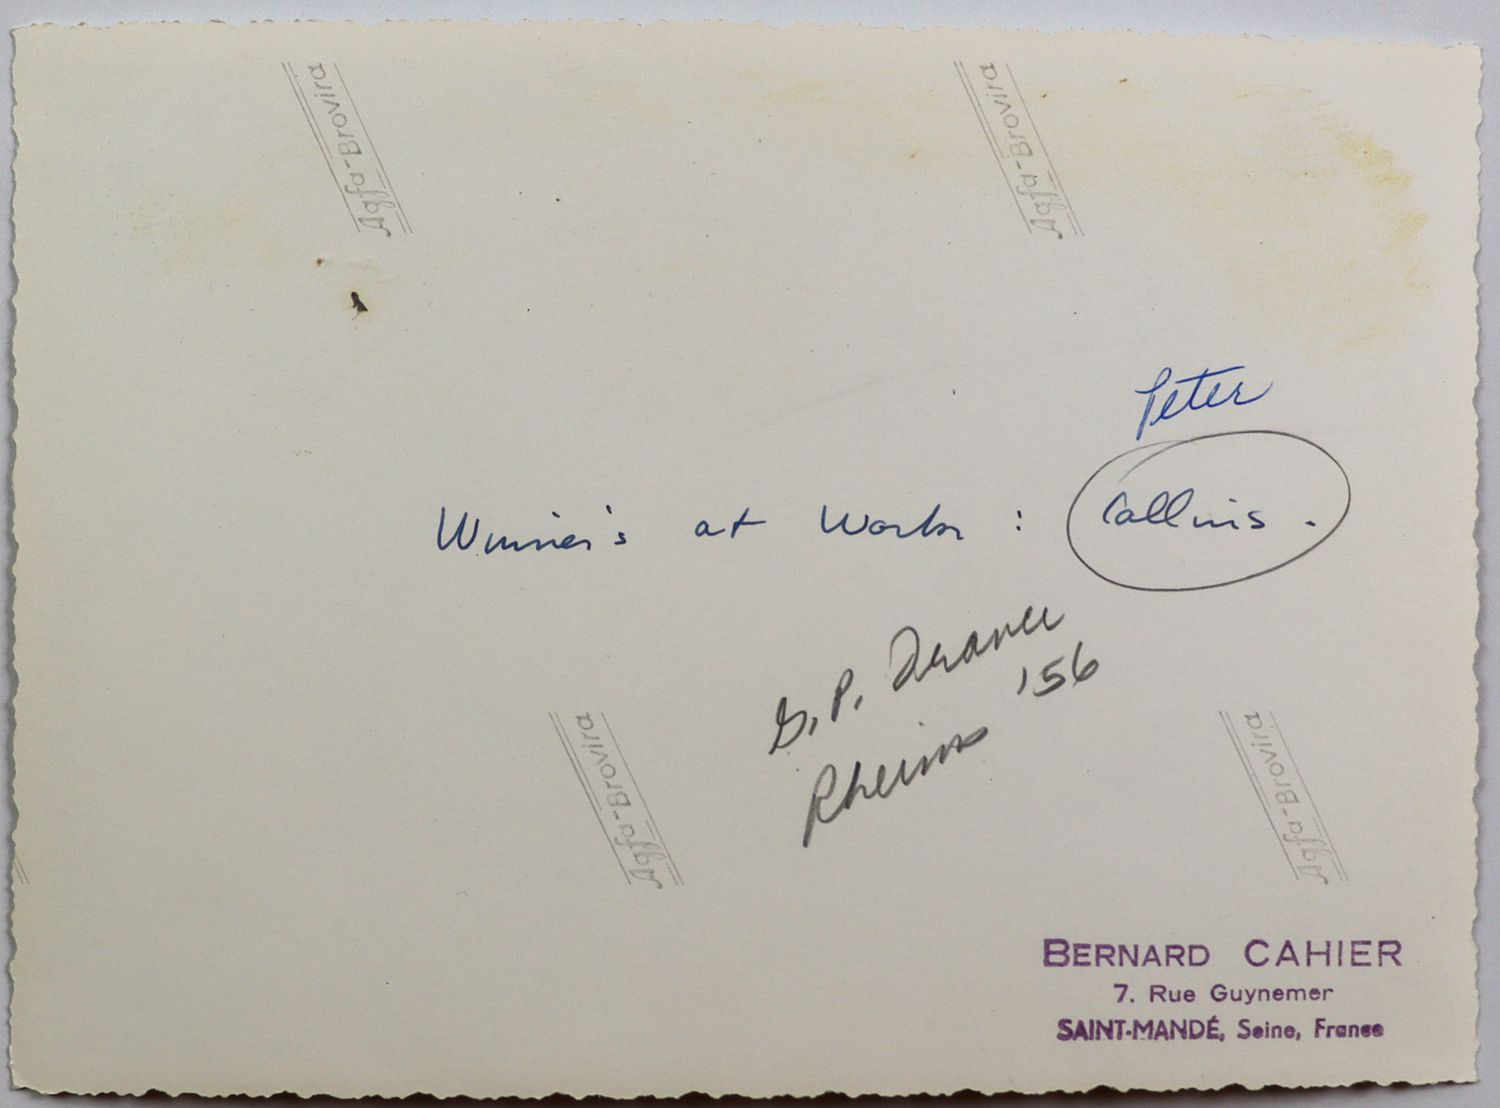 Agfa-Brovira
Agfa-Brovira
Peter
Winner's at Work : Collins.
G.P. France
'56
Rheims
Agfa-Brovira
Agfa-Brovira
BERNARD CAHIER
7. Rue Guynemer
SAINT-MANDÉ, Seine, France